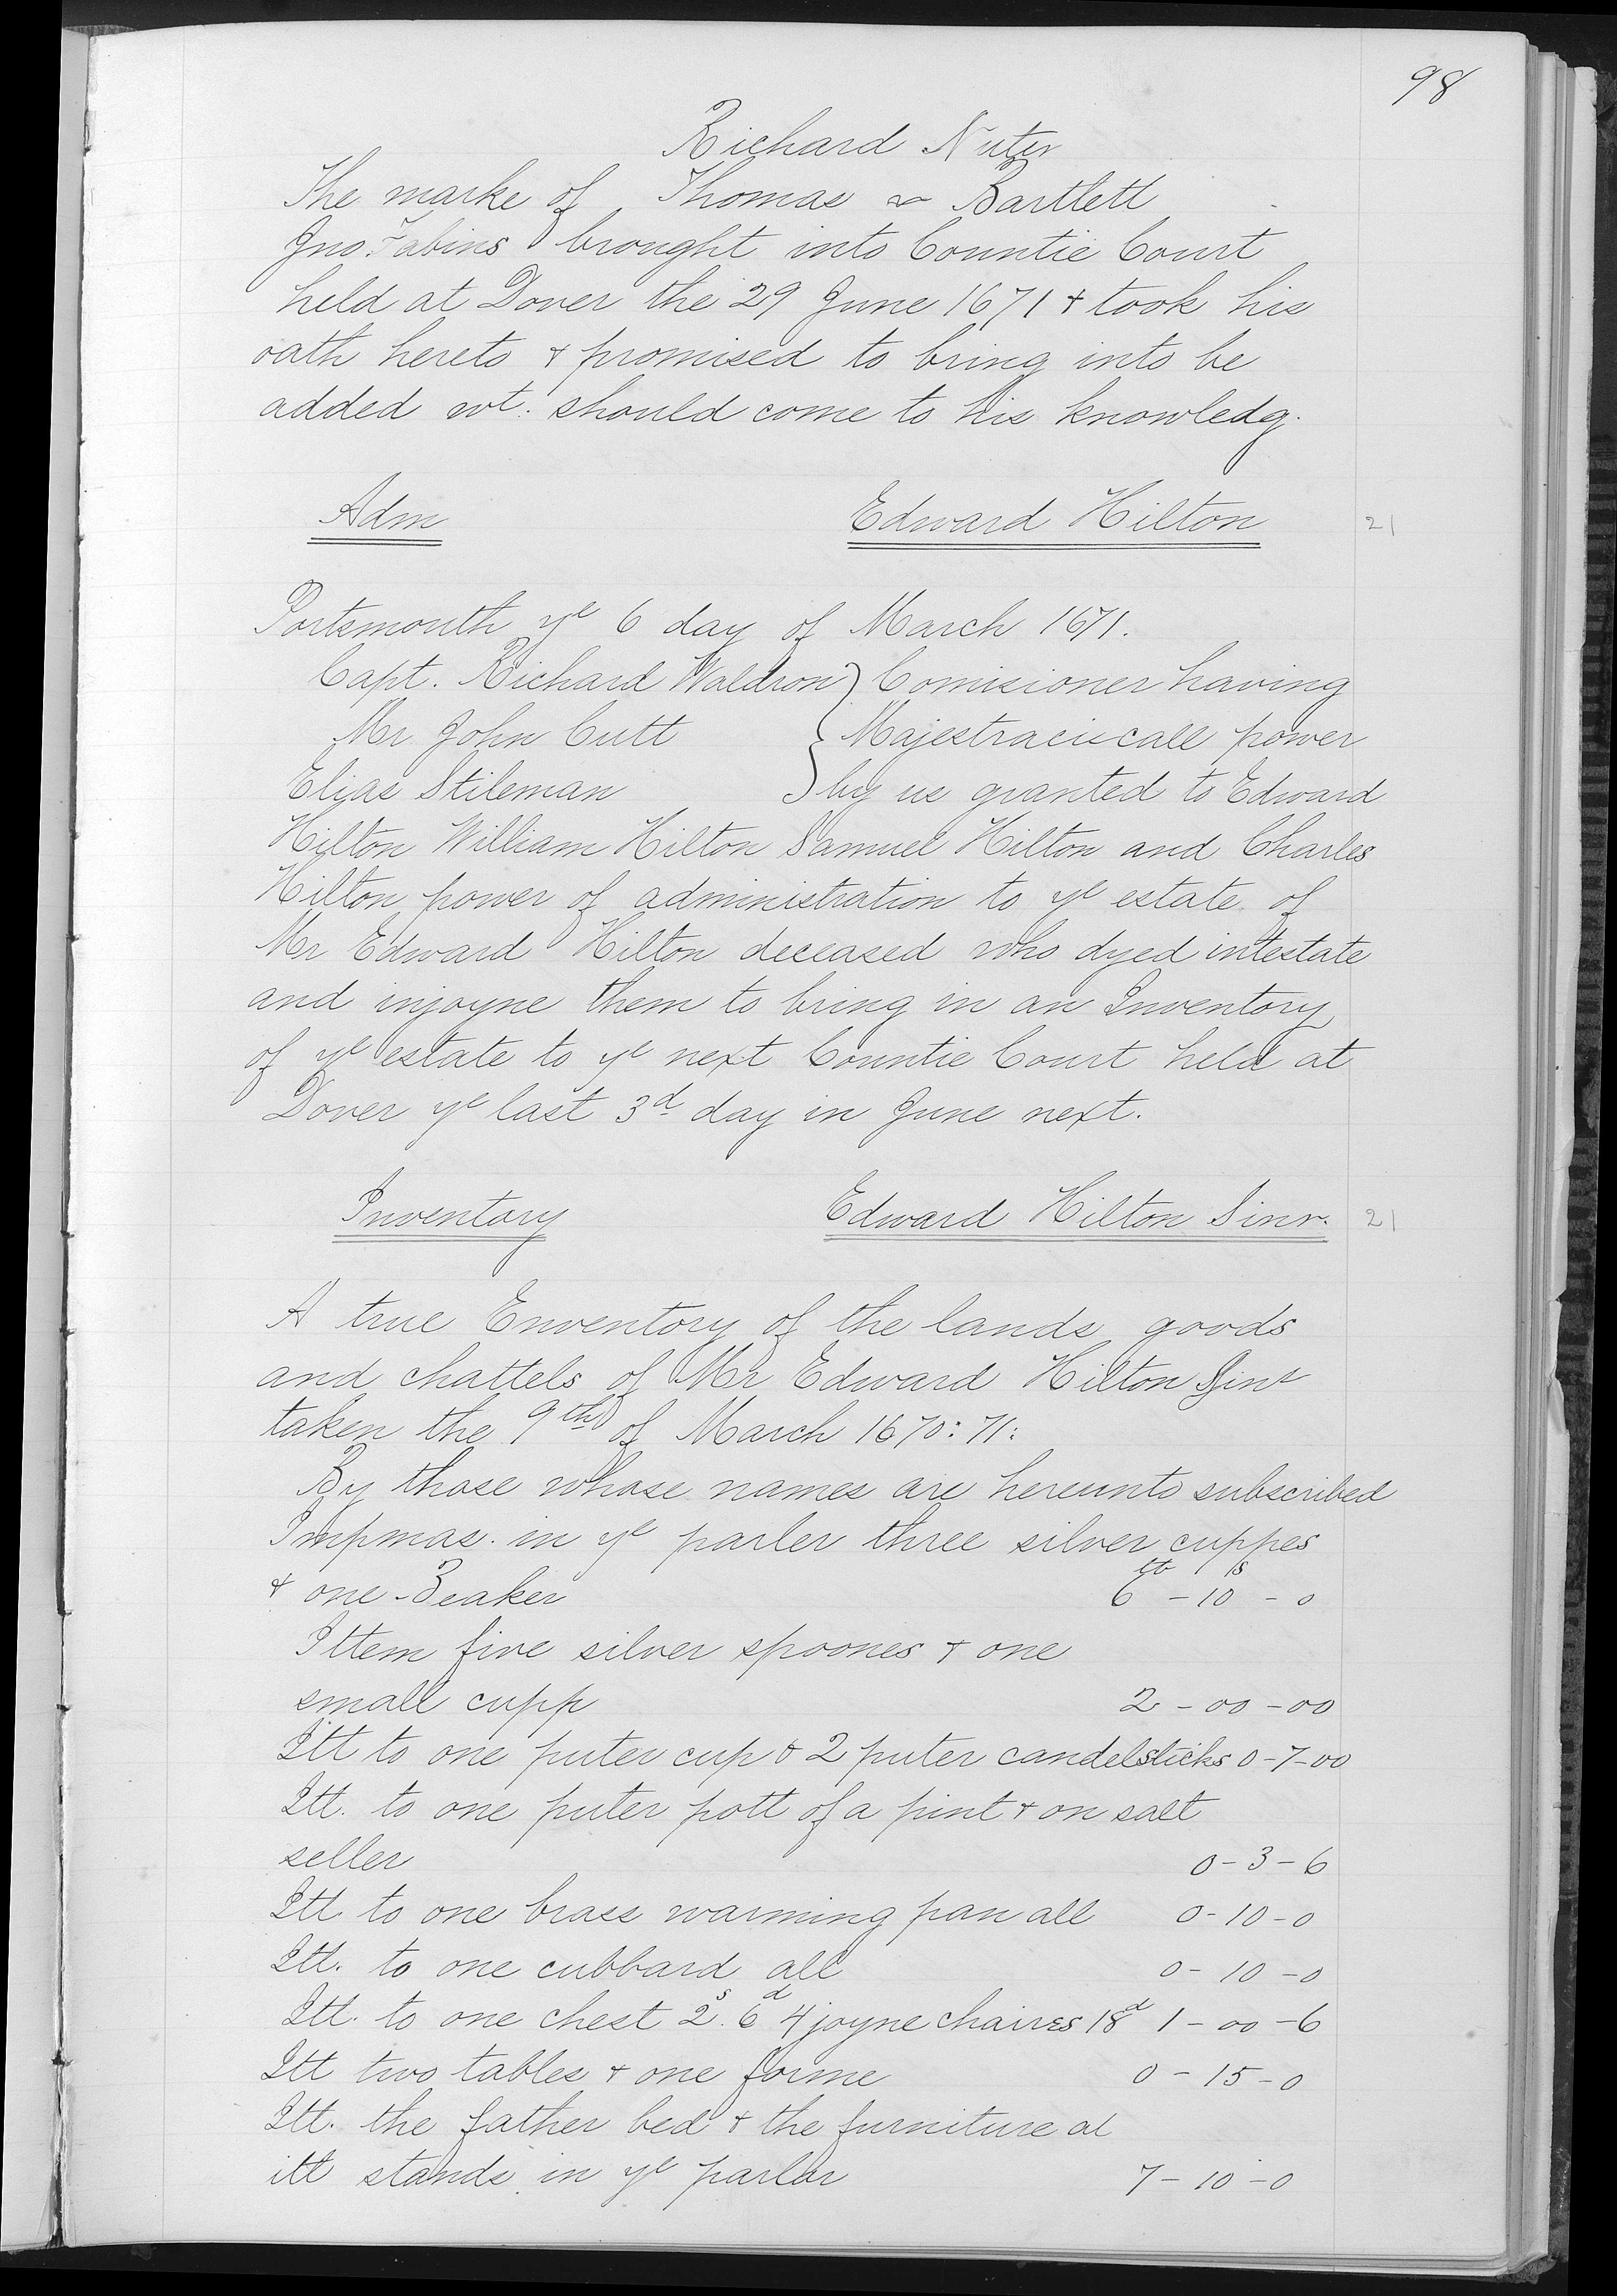 98
Richard Nuter
The marke of Thomas ~ Bartlett
Jno. Fabins brought into Countie Court
held at Dover the 29 June 1671 & took his
oath hereto & promised to bring into be
added wt: should come to his knowledg.
Adm Edward Hilton 21
Portsmouth ye 6 day of March 1671.
Capt. Richard Waldron } Comisioner having
Mr John Cutt } Majestraciecall power
Elias Stileman } by us granted to Edward
Hilton William Hilton Samuel Hilton and Charles
Hilton power of administration to ye estate of
Mr Edward Hilton deceased who dyed intestate
and injoyne them to bring in an Inventory
of ye estate to ye next Countie Court held at
Dover ye last 3d day in June next.
Inventory Edward Hilton Sinr. 21
A true Enventory of the lands goods
and chattels of Mr Edward Hilton Sinr
taken the 9th of March 1670:71:
By those whose names are hereunto subscribed
Impmas. in ye parler three silver cuppes
& one Beaker 6lb - 10s - 0
Ittem five silver spoones & one
small cupp 2 - 00 - 00
Itt to one puter cup & 2 puter candelsticks 0-7-00
Itt. to one puter pott of a pint & on salt
seller 0-3-6
Itt to one brass warming pan all 0-10-0
Itt. to one cubbard all 0-10-0
Itt. to one chest 2s. 6d 4 joyne chaires 18d 1-00-6
Itt two tables & one forme 0-15-0
Itt. the father bed & the furniture al
itt stands in ye parlar 7-10-0